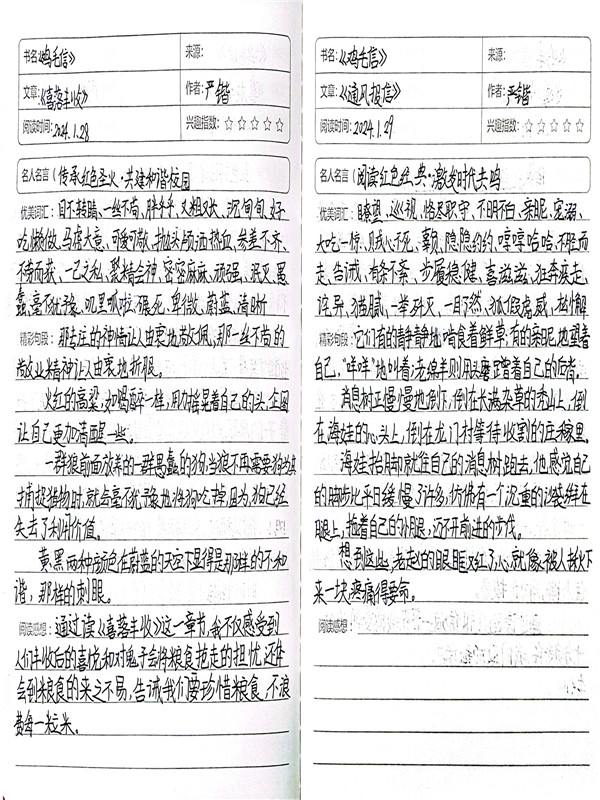 书名:《鸡毛信》 来源:
文章:《喜落丰收》 作者:严锴
阅读时间:2024.1.28 兴趣指数:☆☆☆☆☆
名人名言(传承红色圣火·共建和谐校园
优美词汇:目不转睛、一丝不苟、胖乎乎、又粗又大、沉甸甸、好
吃懒做、马虎大意、可憎可敬、抛头颅洒热血、参差不齐、
不劳而获、一己之私、聚精会神、密密麻麻、顽强、泯灭、愚
蠢、毫不犹豫、叽里呱啦、碾死、卑微、蔚蓝、清晰
精彩句段:那专注的神情让人由衷地敬佩,那一丝不苟的
敬业精神让人由衷地折服。
火红的高粱,如喝醉一样,用力摇晃着自己的头,企图
让自己更加清醒一些。
一群狼前面放养的一群愚蠢的狗,当狼不再需要狗去
捕捉猎物时,就会毫不犹豫地将狗吃掉,因为,狗已经
失去了利用价值。
黄、黑两种颜色在蔚蓝的天空下显得是那样的不和
谐,那样的刺眼。
阅读感想:通过读《喜落丰收》这一章节,我不仅感受到
人们丰收后的喜悦和对鬼子会将粮食抢走的担忧,还体
会到粮食的来之不易,告诫我们要珍惜粮食,不浪
费每一粒米。
书名:《鸡毛信》 来源:
文章:《通风报信》 作者:严锴
阅读时间:2024.1.29 兴趣指数:☆☆☆☆☆
名人名言(阅读红色经典·激发时代共鸣
优美词汇:瞭望、巡视、恪尽职守、不明不白、亲昵、宠溺、
大吃一惊、贼心不死、隐隐约约、哼哼哈哈、不胫而
走、告诫、有条不紊、步履稳健、喜滋滋、狂奔疾走、
诧异、猫腻、一举歼灭、一目了然、狐假虎威、松懈
精彩句段:它们有的静静地啃食着鲜草;有的亲昵地望着
自己,“咩咩”地叫着;老绵羊则用头磨蹭着自己的后背。
消息树正慢慢地倒下,倒在长满杂草的秃山上,倒
在海娃的心头上,倒在龙门村等待收割的庄稼里。
海娃抬脚就往自己的消息树跑去,他感觉自己
的脚步比平日缓慢了许多,仿佛有一个沉重的沙袋绑在
腿上,拖着自己的小腿,迈不开前进的步伐。
想到这些,老赵的眼眶又红了,心就像被人揪下
来一块,疼痛得要命。
阅读感想: